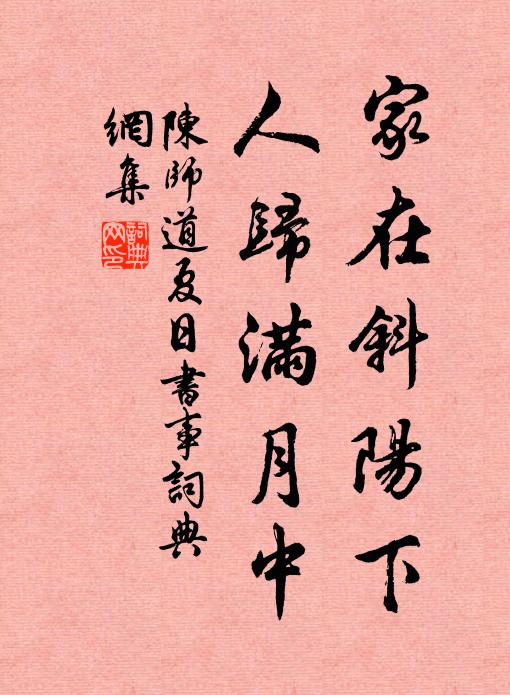 家在斜陽下
人歸滿月中
陳師道夏日書事詞典
網集
詞典
网印